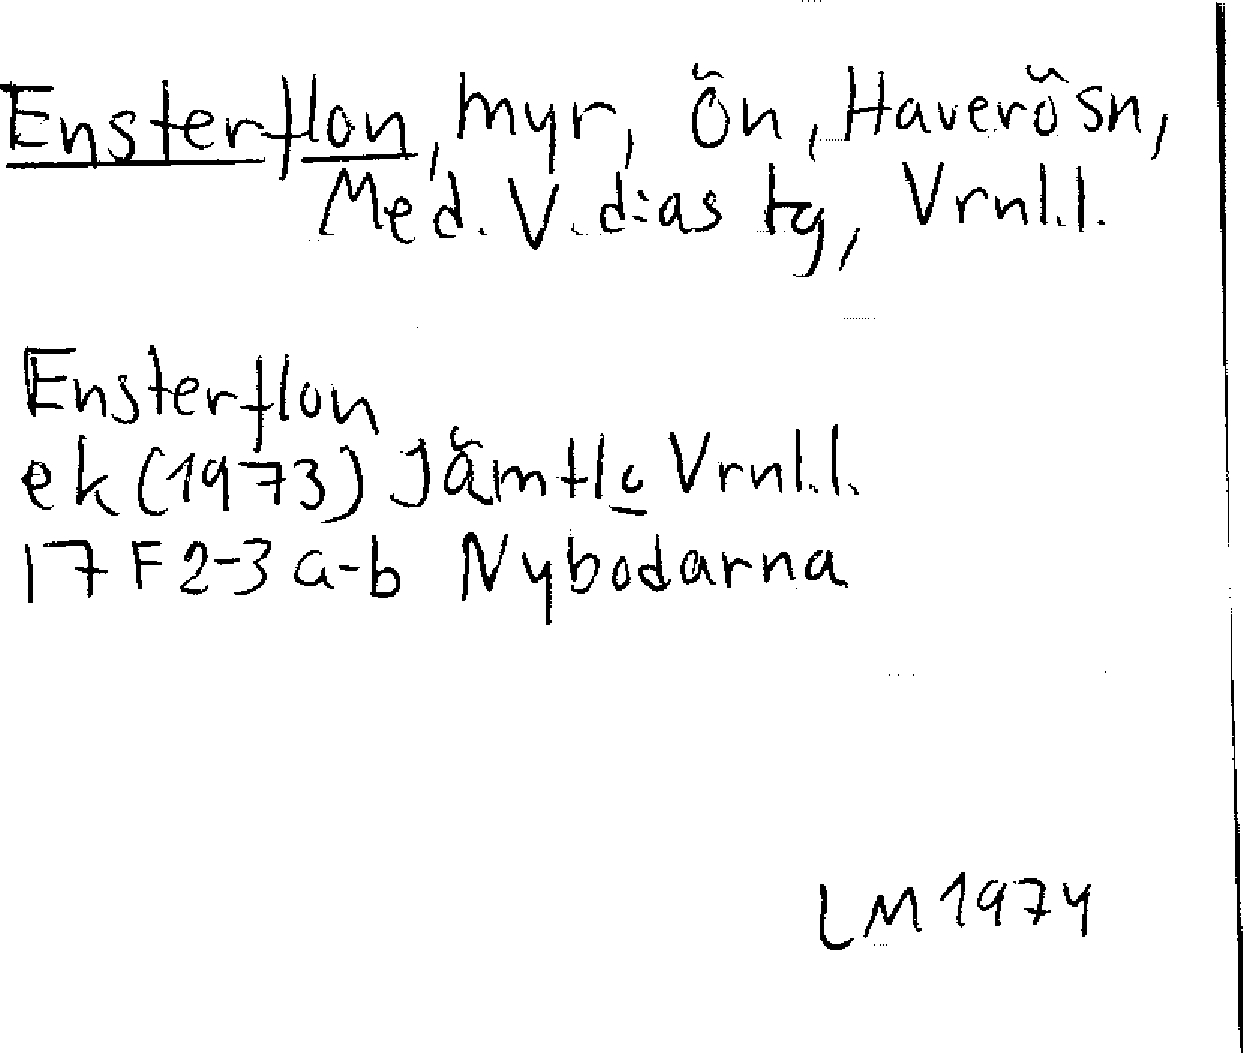 Ensterflon, myr, Ön, Haverö sn,
Med. V. d:as tg, Vrnl.l.
Ensterflon
ek (1973) Jämtl c Vrnl.l.
17 F 2-3 a-b Nybodarna
LM 1974